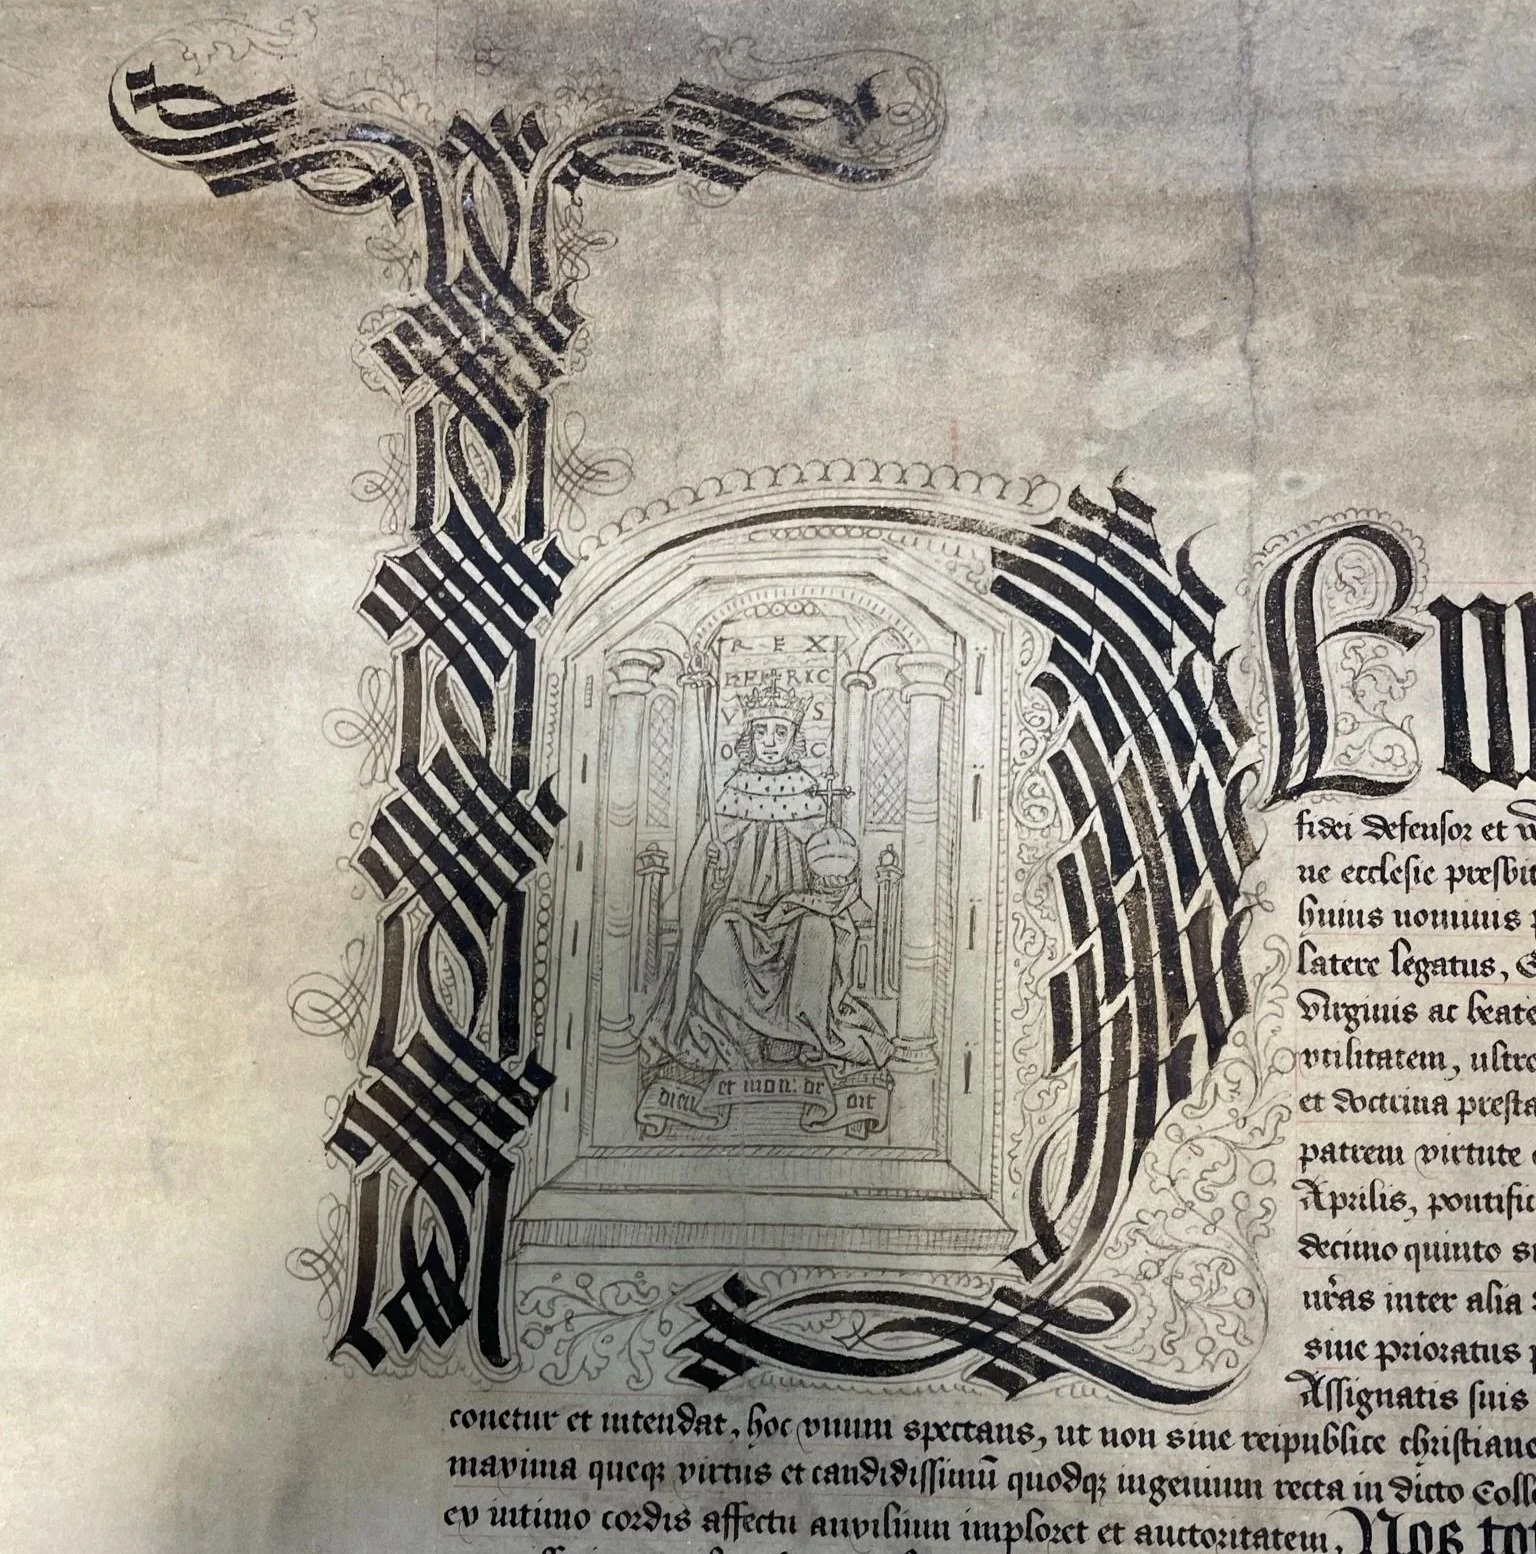 REX
HENRIC
V S
O C
dieu et mon: dr oit
h
Em
fidei defensor et
ne ecclesie
huius nominis
latere legatus,
virginis ac beate
vtilitatem, ultro
et doctrina
patrem virtute
Aprilis,
decimo quinto
nr̃as inter alia
siue prioratus
Assignatis suis
conetur et intendat, hoc vnum spectans, ut non sine reipublice
maxima queqȝ virtus et candidissimū quodqȝ ingenium recta in dicto
ex intimo cordis affectu auxilium imploret et auctoritatem, Nos